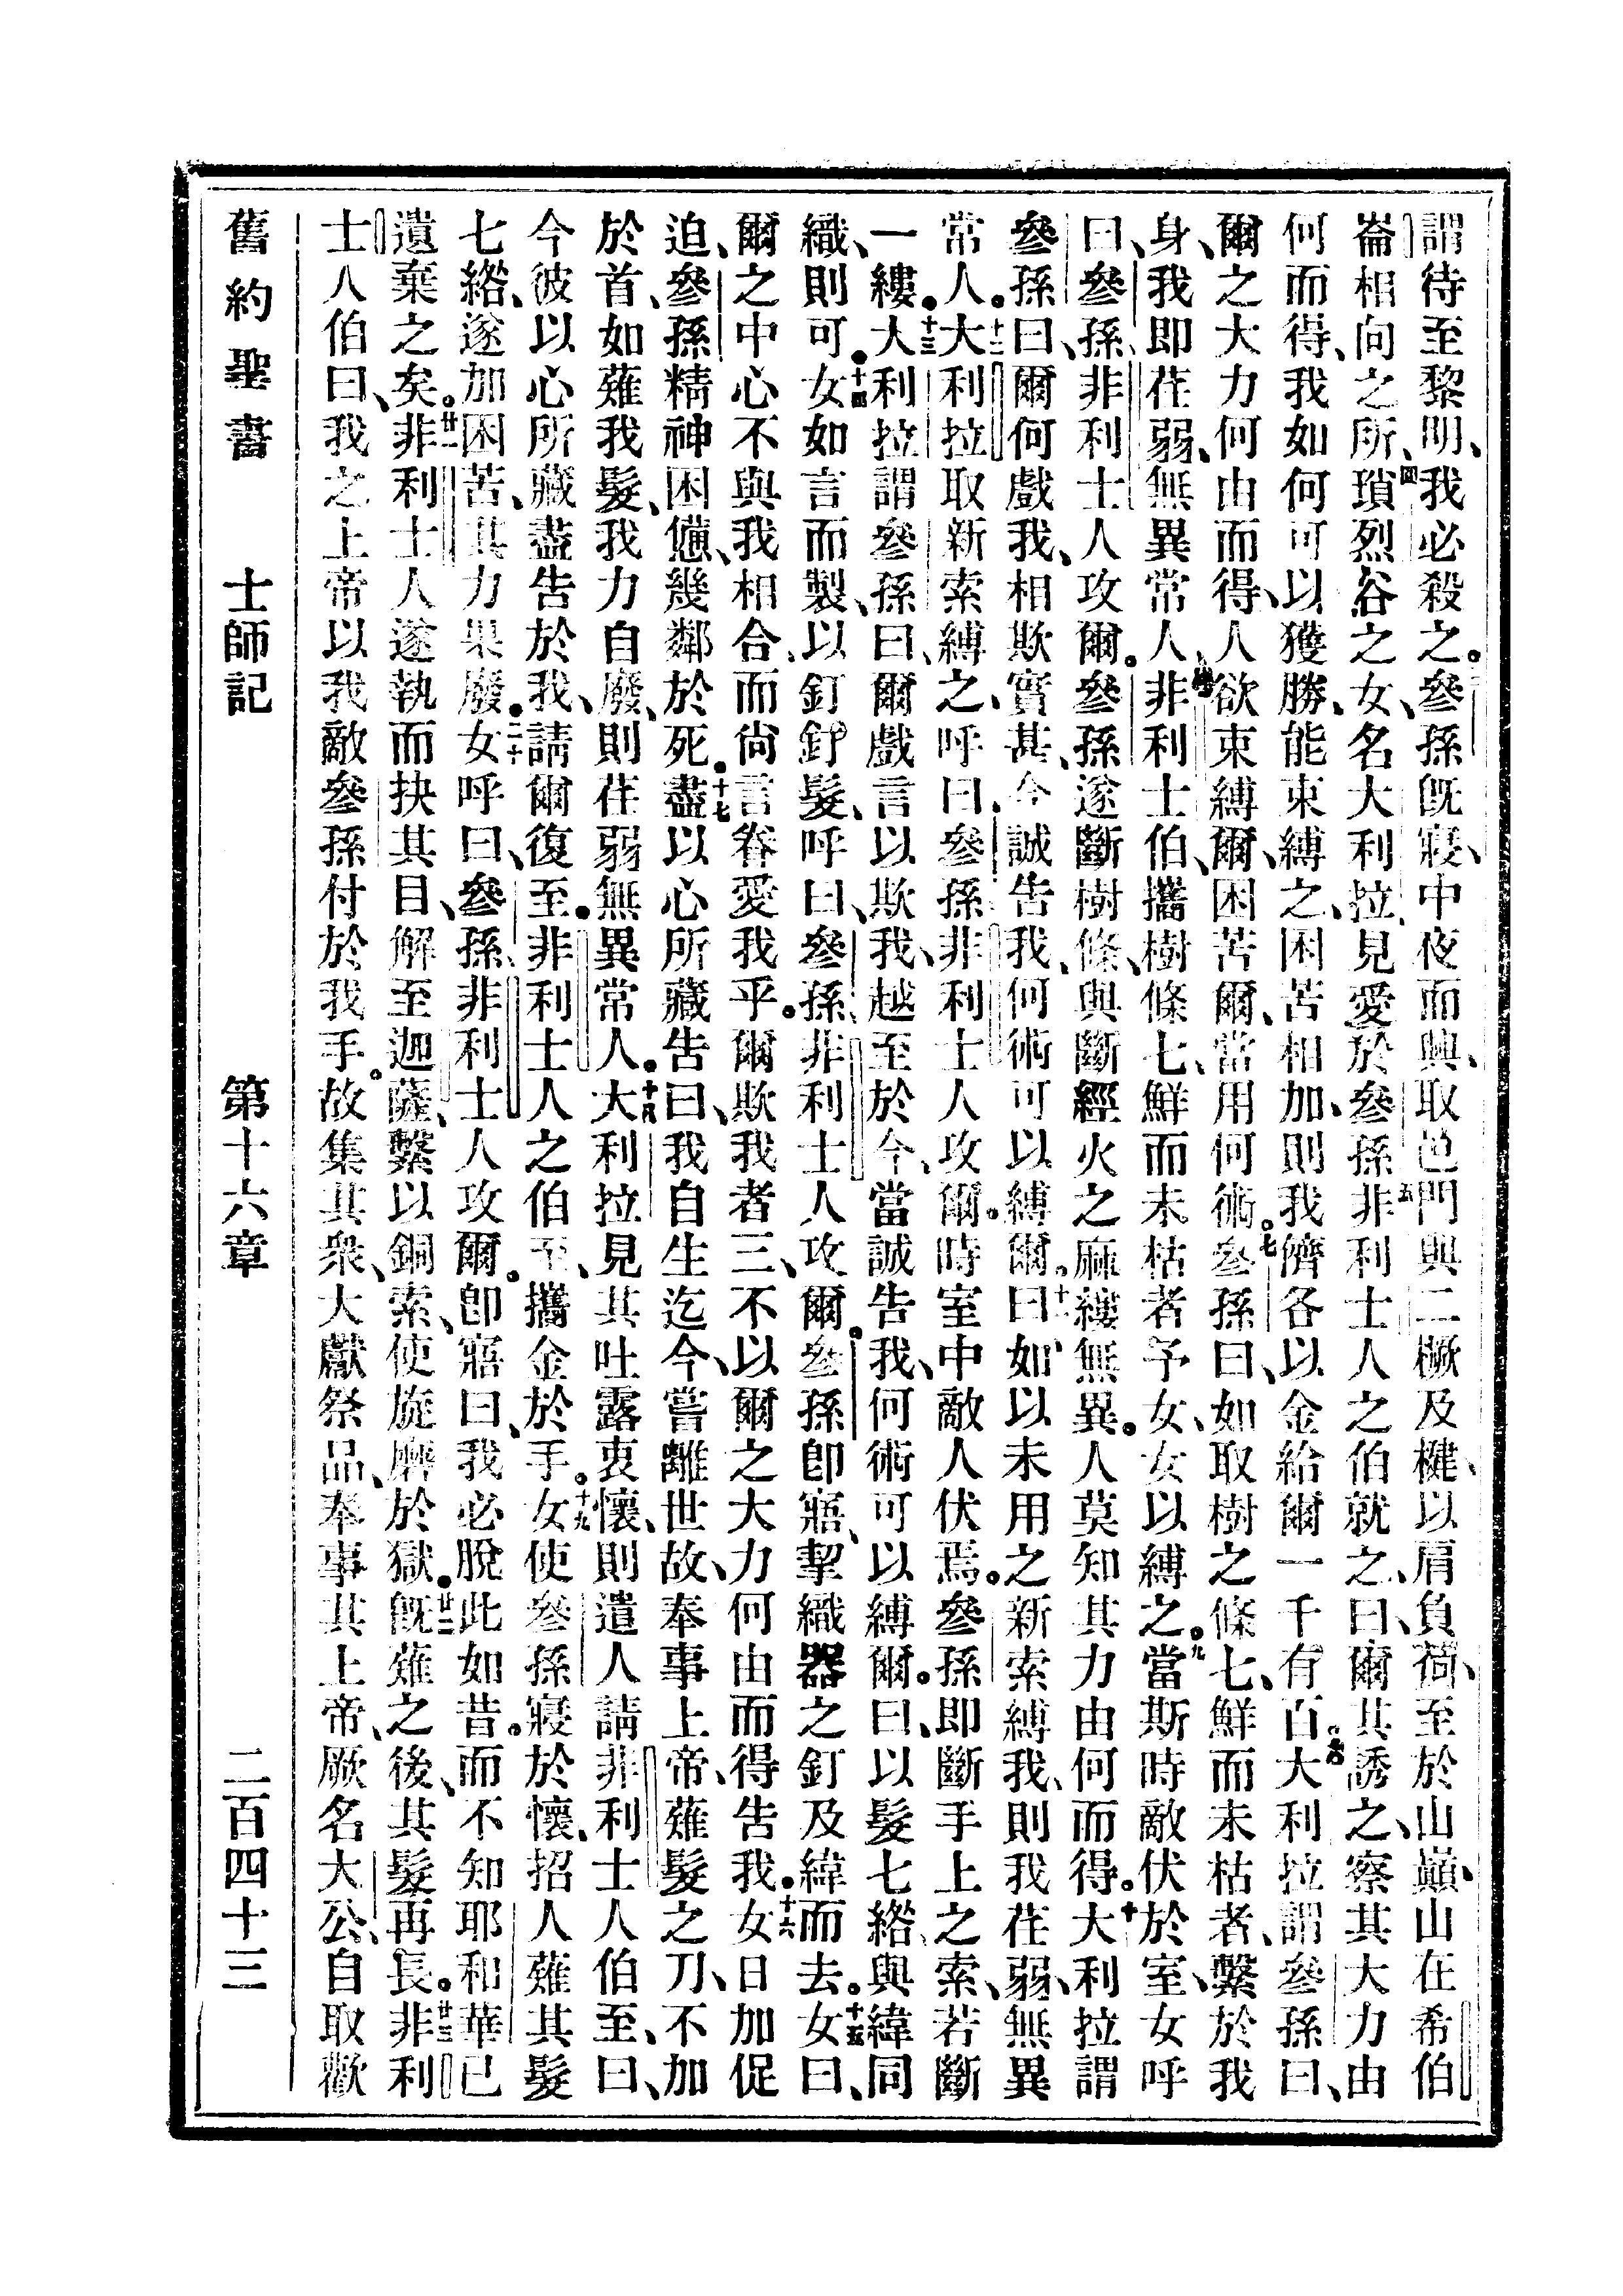 謂待至黎明、我必殺之。三參孫旣寢、中夜而興、取邑門與二橛及楗、以肩負荷、至於山巓、山在希伯
崙相向之所、四瑣烈谷之女、名大利拉、見愛於參孫、五非利士人之伯就之、曰、爾其誘之、察其大力由
何而得、我如何可以獲勝、能束縛之、困苦相加、則我儕各以金給爾一千有百。六大利拉謂參孫曰、
爾之大力何由而得、人欲束縛爾、困苦爾、當用何術。七參孫曰、如取樹之條七、鮮而未枯者、繫於我
身、我即荏弱、無異常人、八非利士伯、攜樹條七、鮮而未枯者予女、女以縛之。九當斯時敵伏於室、女呼
曰、參孫、非利士人攻爾。參孫遂斷樹條、與斷經火之麻縷無異。人莫知其力由何而得。十大利拉謂
參孫曰、爾何戲我、相欺實甚、今誠告我、何術可以縛爾。十一曰、如以未用之新索縛我、則我荏弱、無異
常人。十二大利拉取新索縛之、呼曰、參孫、非利士人攻爾。時室中敵人伏焉。參孫即斷手上之索、若斷
一縷。十三大利拉謂參孫曰、爾戲言以欺我、越至於今、當誠告我、何術可以縛爾。曰、以髮七綹與緯同
織、則可。十四女如言而製、以釘釘髮、呼曰、參孫、非利士人攻爾。參孫卽寤、挈織器之釘及緯而去。十五女曰、
爾之中心不與我相合、而尙言眷愛我乎。爾欺我者三、不以爾之大力何由而得告我。十六女日加促
迫、參孫精神困憊、幾鄰於死。十七盡以心所藏吿曰、我自生迄今、嘗離世故、奉事上帝、薙髮之刀、不加
於首、如薙我髮、我力自廢、則荏弱無異常人。十八大利拉見其吐露衷懷、則遣人請非利士人伯至、曰、
今彼以心所藏盡告於我、請爾復至。非利士人之伯至、攜金於手。十九女使參孫寢於懷、招人薙其髮
七綹、遂加困苦、其力果廢。二十女呼曰、參孫、非利士人攻爾。卽寤曰、我必脫此如昔。而不知耶和華已
遺棄之矣。廿一非利士人遂執而抉其目、解至迦薩、繫以銅索、使旋磨於獄。廿二旣薙之後、其髮再長。廿三非利
士人伯曰、我之上帝以我敵參孫付於我手。故集其衆、大獻祭品、奉事其上帝、厥名大公、自取歡
舊約聖書 士師記 第十六章 二百四十三